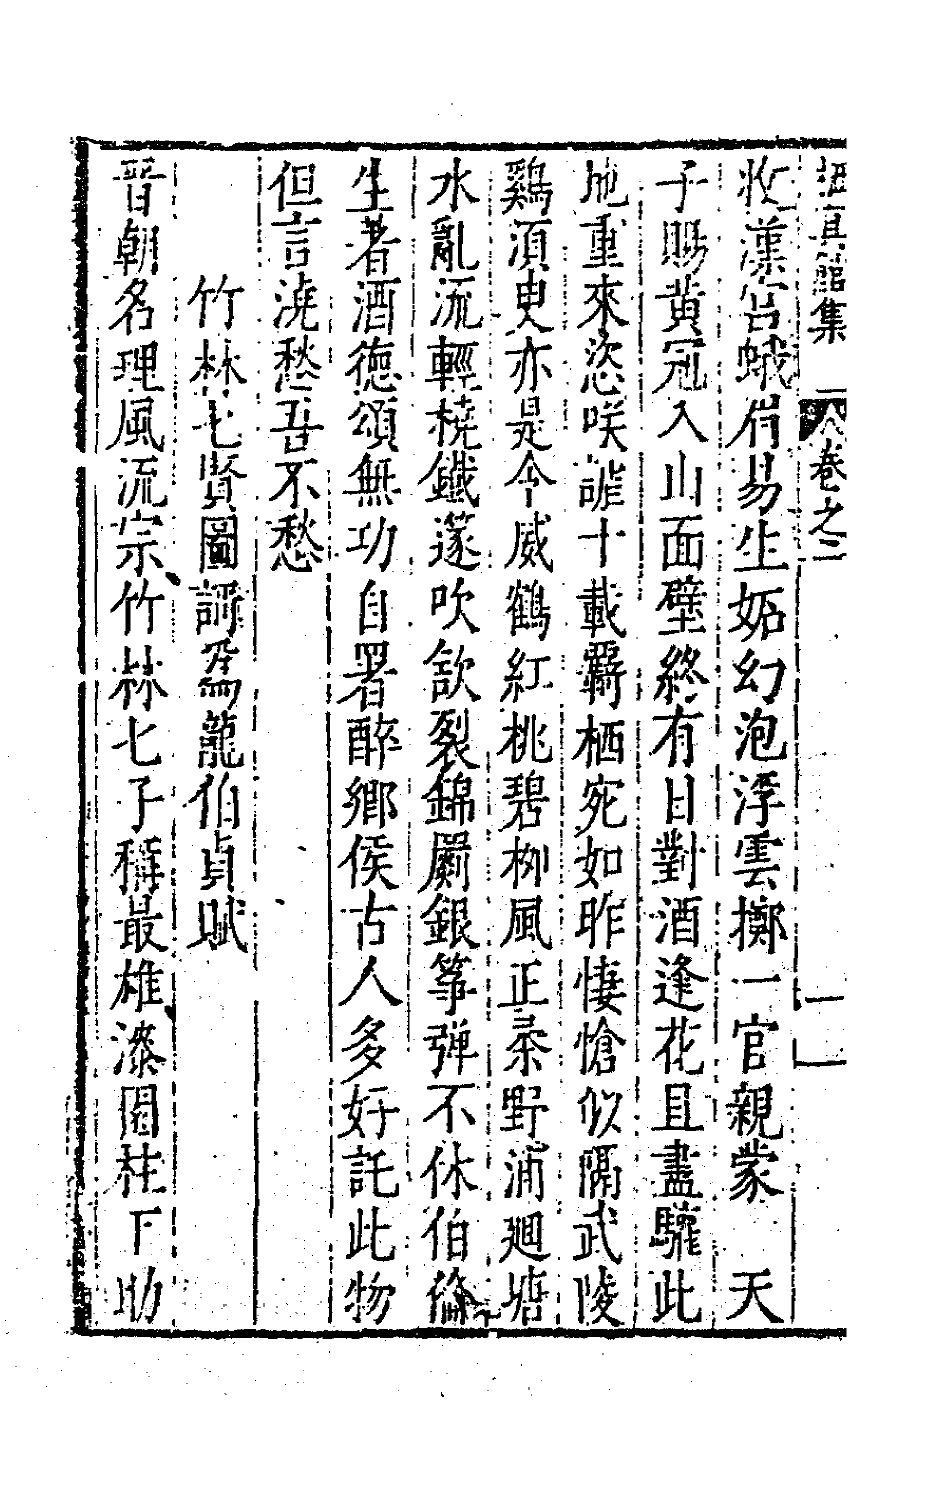 棲真館集 卷之二
收漢宮蛾眉易生妬幻泡浮雲擲一官親蒙 天
子賜黃冠入山面壁終有日對酒逢花且盡驩此
地重來恣咲謔十載羇栖宛如昨悽愴似隔武陵
鷄須臾亦是令威鶴紅桃碧柳風正柔野浦廻塘
水亂流輕橈鐵篴吹歙裂錦罽銀箏彈不休伯倫
生著酒德頌無功自署醉鄉侯古人多好託此物
但言澆愁吾不愁
竹林七賢圖謌為龍伯貞賦
晉朝名理風流宗竹林七子稱最雄漆園柱下助